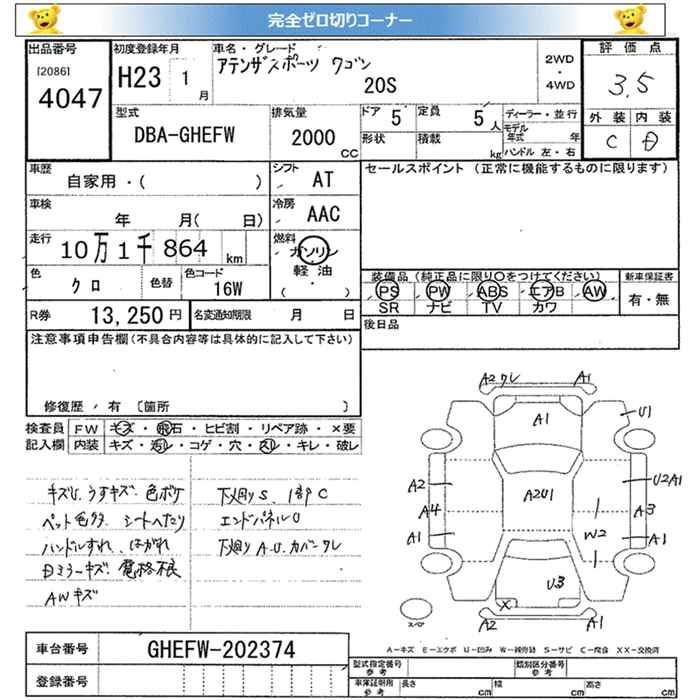 完全ゼロ切りコーナー
出品番号
[2086]
4047
初度登録年月
H23 1月
車名・グレード
アテンザスポーツ ワゴン
20S
2WD
・
4WD
評価点
3.5
外装 内装
C D
型式
DBA-GHEFW
排気量
2000 CC
ドア 5
定員 5人
形状
積載 kg
ディーラー・並行
モデル年式 年
ハンドル 左・右
車歴
自家用・( )
シフト
AT
セールスポイント (正常に機能するものに限ります)
車検
年 月( 日)
冷房
AAC
走行
10万1千864 km
燃料
ガソリン
軽油
( ・ )
色
クロ
色替
色コード
16W
装備品(純正品に限り○をつけてください)
PS PW ABS エアB AW
SR ナビ TV カワ
新車保証書
有・無
R券 13,250円
名変通知期限 月 日
後日品
注意事項申告欄(不具合内容等は具体的に記入して下さい)
修復歴 / 有 〔箇所 〕
検査員記入欄
FW キズ・飛石・ヒビ割・リペア跡・×要
内装 キズ・汚レ・コゲ・穴・スレ・キレ・破レ
キズU.うすキズ.色ボケ
ペット色々 シートへたり
ハンドルすれ.はがれ
Dミラーキズ 電格不良
AWキズ
下廻りS.1部C
エンドパネルU
下廻りA.U.カバークレ
A2ワレ A1
A1
U1
A2
A4
A1
A2U1
U2A1
A3
W2
A1
U3
X
A2 A1
スペア
A-キズ E-エクボ U-凹み W-補修跡 S-サビ C-腐食 XX-交換済
車台番号
GHEFW-202374
登録番号
型式指定番号
参考
類別区分番号
参考
車庫証明用
参考
長さ cm
幅 cm
高さ cm